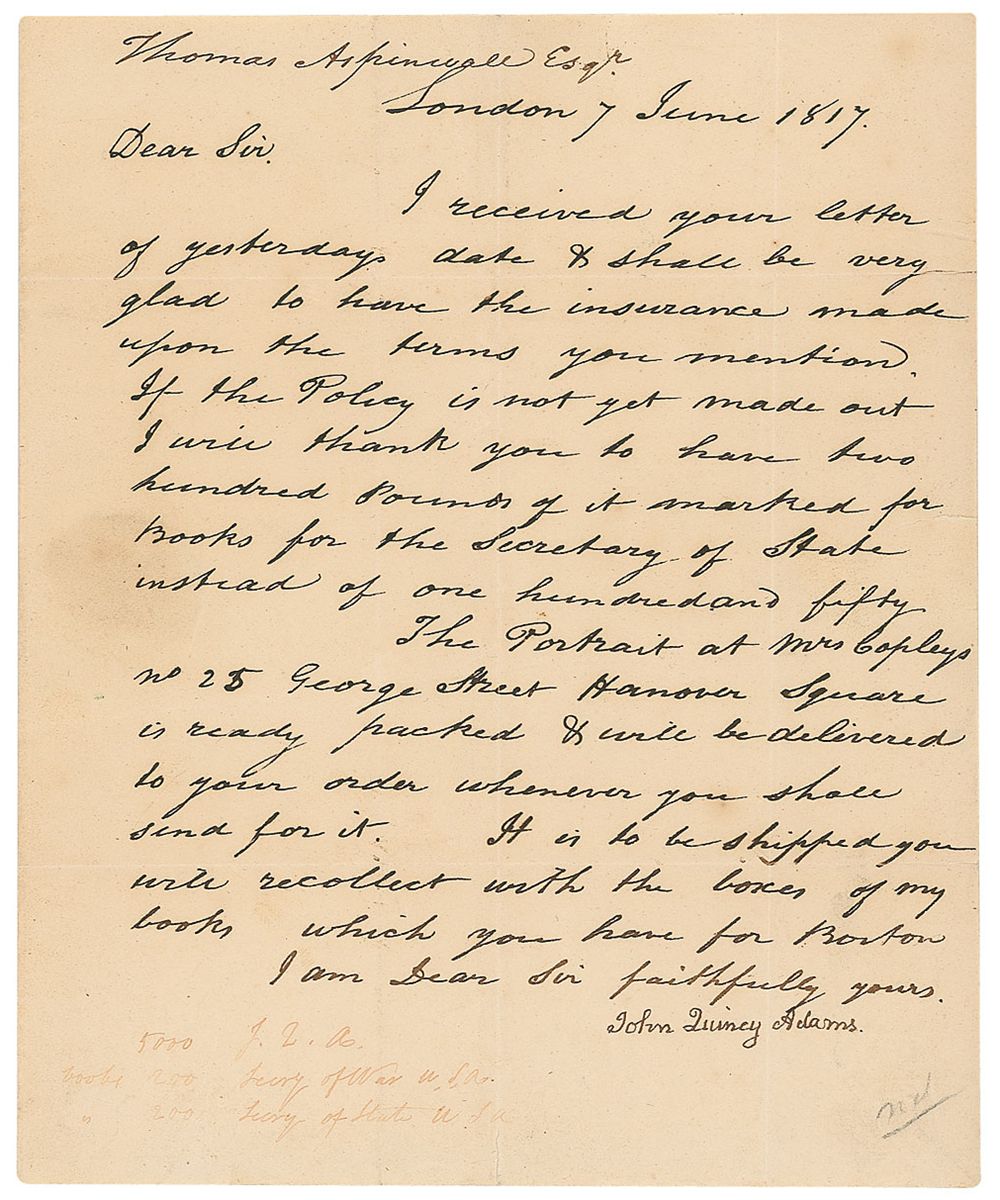 Thomas Aspinwall Esqr.
London 7 June 1817.
Dear Sir.
I received your letter
of yesterdays date & shall be very
glad to have the insurance made
upon the terms you mention.
If the Policy is not yet made out
I will thank you to have two
hundred Pounds of it marked for
Books for the Secretary of State
instead of one hundred and fifty
The Portrait at Mrs Copleys
no 25 George Street Hanover Square
is ready packed & will be delivered
to your order whenever you shall
send for it. It is to be shipped you
will recollect with the boxes of my
books which you have for Boston
I am Dear Sir faithfully yours.
John Quincy Adams.
5000 J. Q. A.
books 200 Secry of War U.S.A.
" 200 Secry of State U S A